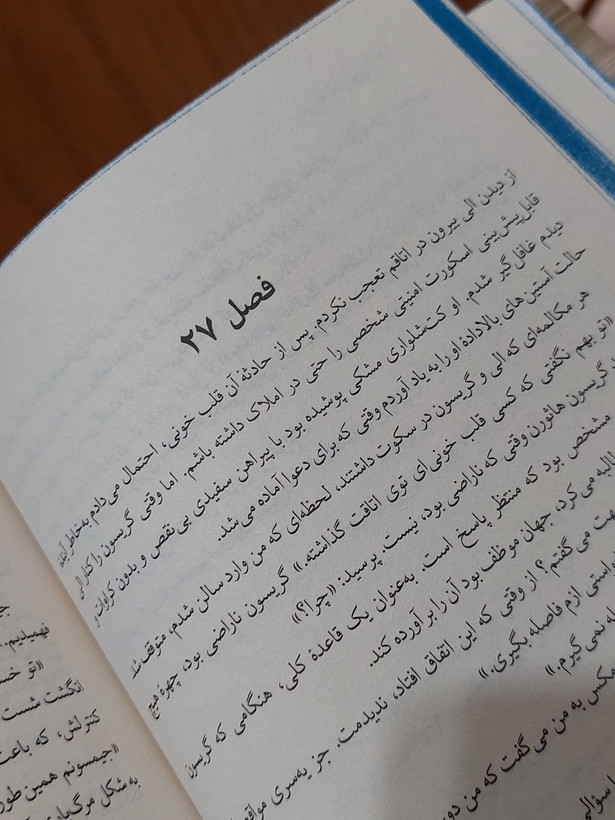 فصل ۲۷
از دیدن الی بیرون در اتاقم تعجب نکردم. پس از حادثهٔ آن قلب خونی، احتمال می‌دادم به‌خاطر
قابل‌پیش‌بینی اسکورت امنیتی شخصی را حتی در املاک داشته باشم. اما وقتی گریسون را کنار الی
دیدم غافل‌گیر شدم. او کت‌شلواری مشکی پوشیده بود با پیراهن سفیدی بی‌نقص و بدون کراوات و
حالت آستین‌های بالاداده او را به یاد آوردم وقتی که برای دعوا آماده می‌شد.
هر مکالمه‌ای که الی و گریسون در سکوت داشتند، لحظه‌ای که من وارد سالن شدم، متوقف شد.
«تو بهم نگفتی که کسی قلب خونی‌ای توی اتاقت گذاشته.» گریسون ناراضی بود، چهرهٔ هیچ
گریسون هاثورن وقتی که ناراضی بود، نیست. پرسید: «چرا؟»
مشخص بود که منتظر پاسخ است. به‌عنوان یک قاعدهٔ کلی، هنگامی که گریسون
می‌کرد، جهان موظف بود آن را برآورده کند.
بهت می‌گفتم؟ از وقتی که این اتفاق افتاد، ندیدمت. جز یه‌سری
ازم فاصله بگیری.»
نمی‌گیرم.»
مکس به من می‌گفت که من
نهمیدیم.
«تو
انگشت شست
کنترلش، که باعث
«جیمسونم همین طور
به شکل